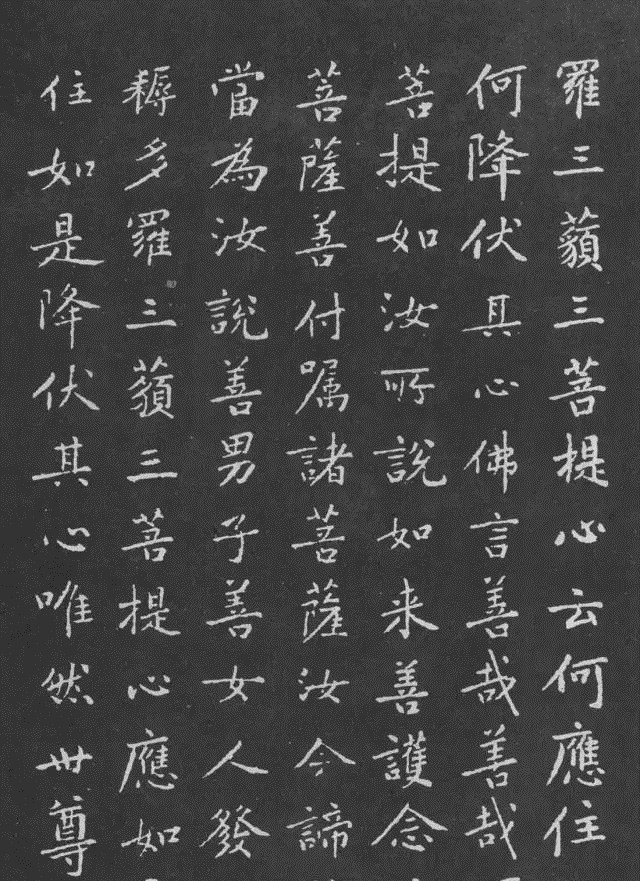 羅三藐三菩提心云何應住
何降伏其心佛言善哉善哉
菩提如汝所說如来善護念
菩薩善付嘱諸菩薩汝今諦
當為汝說善男子善女人發
耨多羅三藐三菩提心應如
住如是降伏其心唯然世尊